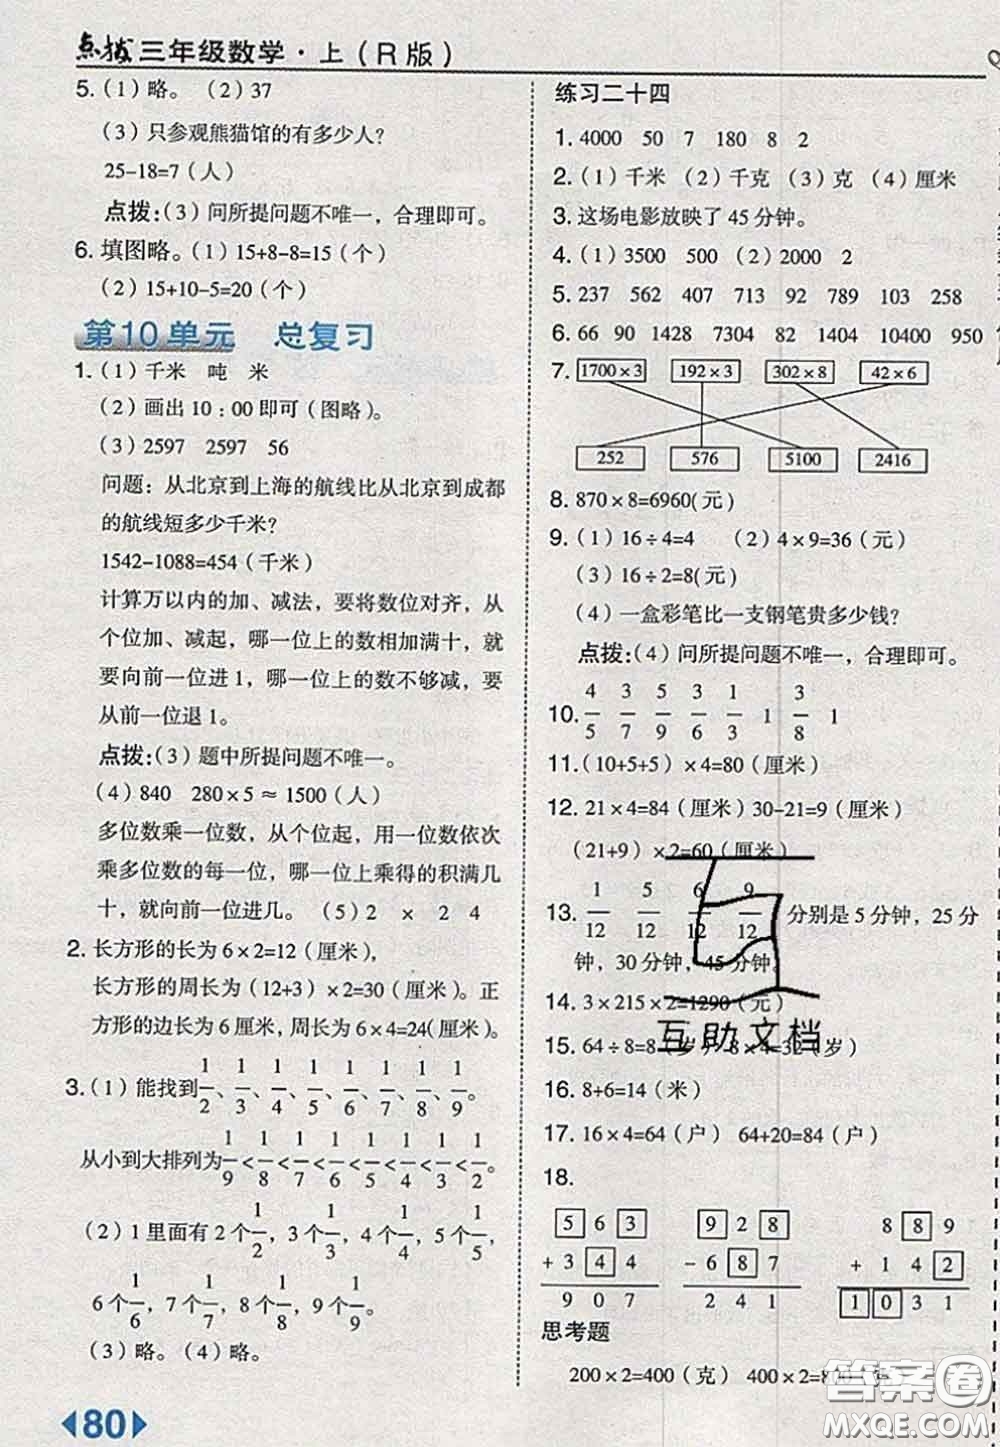 点拨 三年级数学·上（R版）
5.（1）略。（2）37
（3）只参观熊猫馆的有多少人?
25-18=7（人）
点拨:（3）问所提问题不唯一，合理即可。
6. 填图略。（1）15+8-8=15（个）
（2）15+10-5=20（个）
第10单元 总复习
1.（1）千米 吨 米
（2）画出10:00即可（图略）。
（3）2597 2597 56
问题：从北京到上海的航线比从北京到成都
的航线短多少千米?
1542-1088=454（千米）
计算万以内的加、减法，要将数位对齐，从
个位加、减起，哪一位上的数相加满十，就
要向前一位进1，哪一位上的数不够减，要
从前一位退1。
点拨:（3）题中所提问题不唯一。
（4）840 280×5≈1500（人）
多位数乘一位数，从个位起，用一位数依次
乘多位数的每一位，哪一位上乘得的积满几
十，就向前一位进几。（5）2 × 2 4
2. 长方形的长为6×2=12（厘米），
长方形的周长为（12+3）×2=30（厘米）。正
方形的边长为6厘米，周长为6×4=24（厘米）。
3.（1）能找到1/2、1/3、1/4、1/5、1/6、1/7、1/8、1/9。
从小到大排列为1/9<1/8<1/7<1/6<1/5<1/4<1/3<1/2。
（2）1里面有2个1/2，3个1/3，4个1/4，5个1/5，
6个1/6，7个1/7，8个1/8，9个1/9。
（3）略。（4）略。
80
练习二十四
1. 4000 50 7 180 8 2
2.（1）千米（2）千克（3）克（4）厘米
3. 这场电影放映了45分钟。
4.（1）3500 500（2）2000 2
5. 237 562 407 713 789 103 258
6. 66 90 1428 7304 82 1404 10400 950
7. 1700×3 192×3 302×8 42×6
252 576 5100 2416
8. 870×8=6960(元)
9.（1）16÷4=4（2）4×9=36（元）
（3）16÷2=8(元)
（4）一盒彩笔比一支钢笔贵多少钱?
点拨:（4）问所提问题不唯一，合理即可。
10. 4/5 3/7 5/9 3/6 1/3 1 3/8 1
11.（10+5+5）×4=80（厘米）
12. 21×4=84（厘米）30-21=9（厘米）
（21+9）×2=60（厘米）
13. 1/12 5/12 6/12 9/12 分别是5分钟，25分
钟，30分钟，45分钟。
14. 3×215×2=1290（元）
15. 64÷8=8（岁） 8×4=32（岁）
16. 8+6=14（米）
17. 16×4=64（户） 64+20=84（户）
18.
5 6 3 9 2 8 8 8 9
+ 3 4 4 - 6 8 7 + 1 4 2
9 0 7 2 4 1 1 0 3 1
思考题
200×2=400（克） 400×2=800
互助文档
答案圈
MXQE.COM